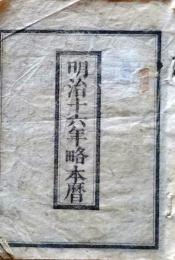 明治十六年略本暦